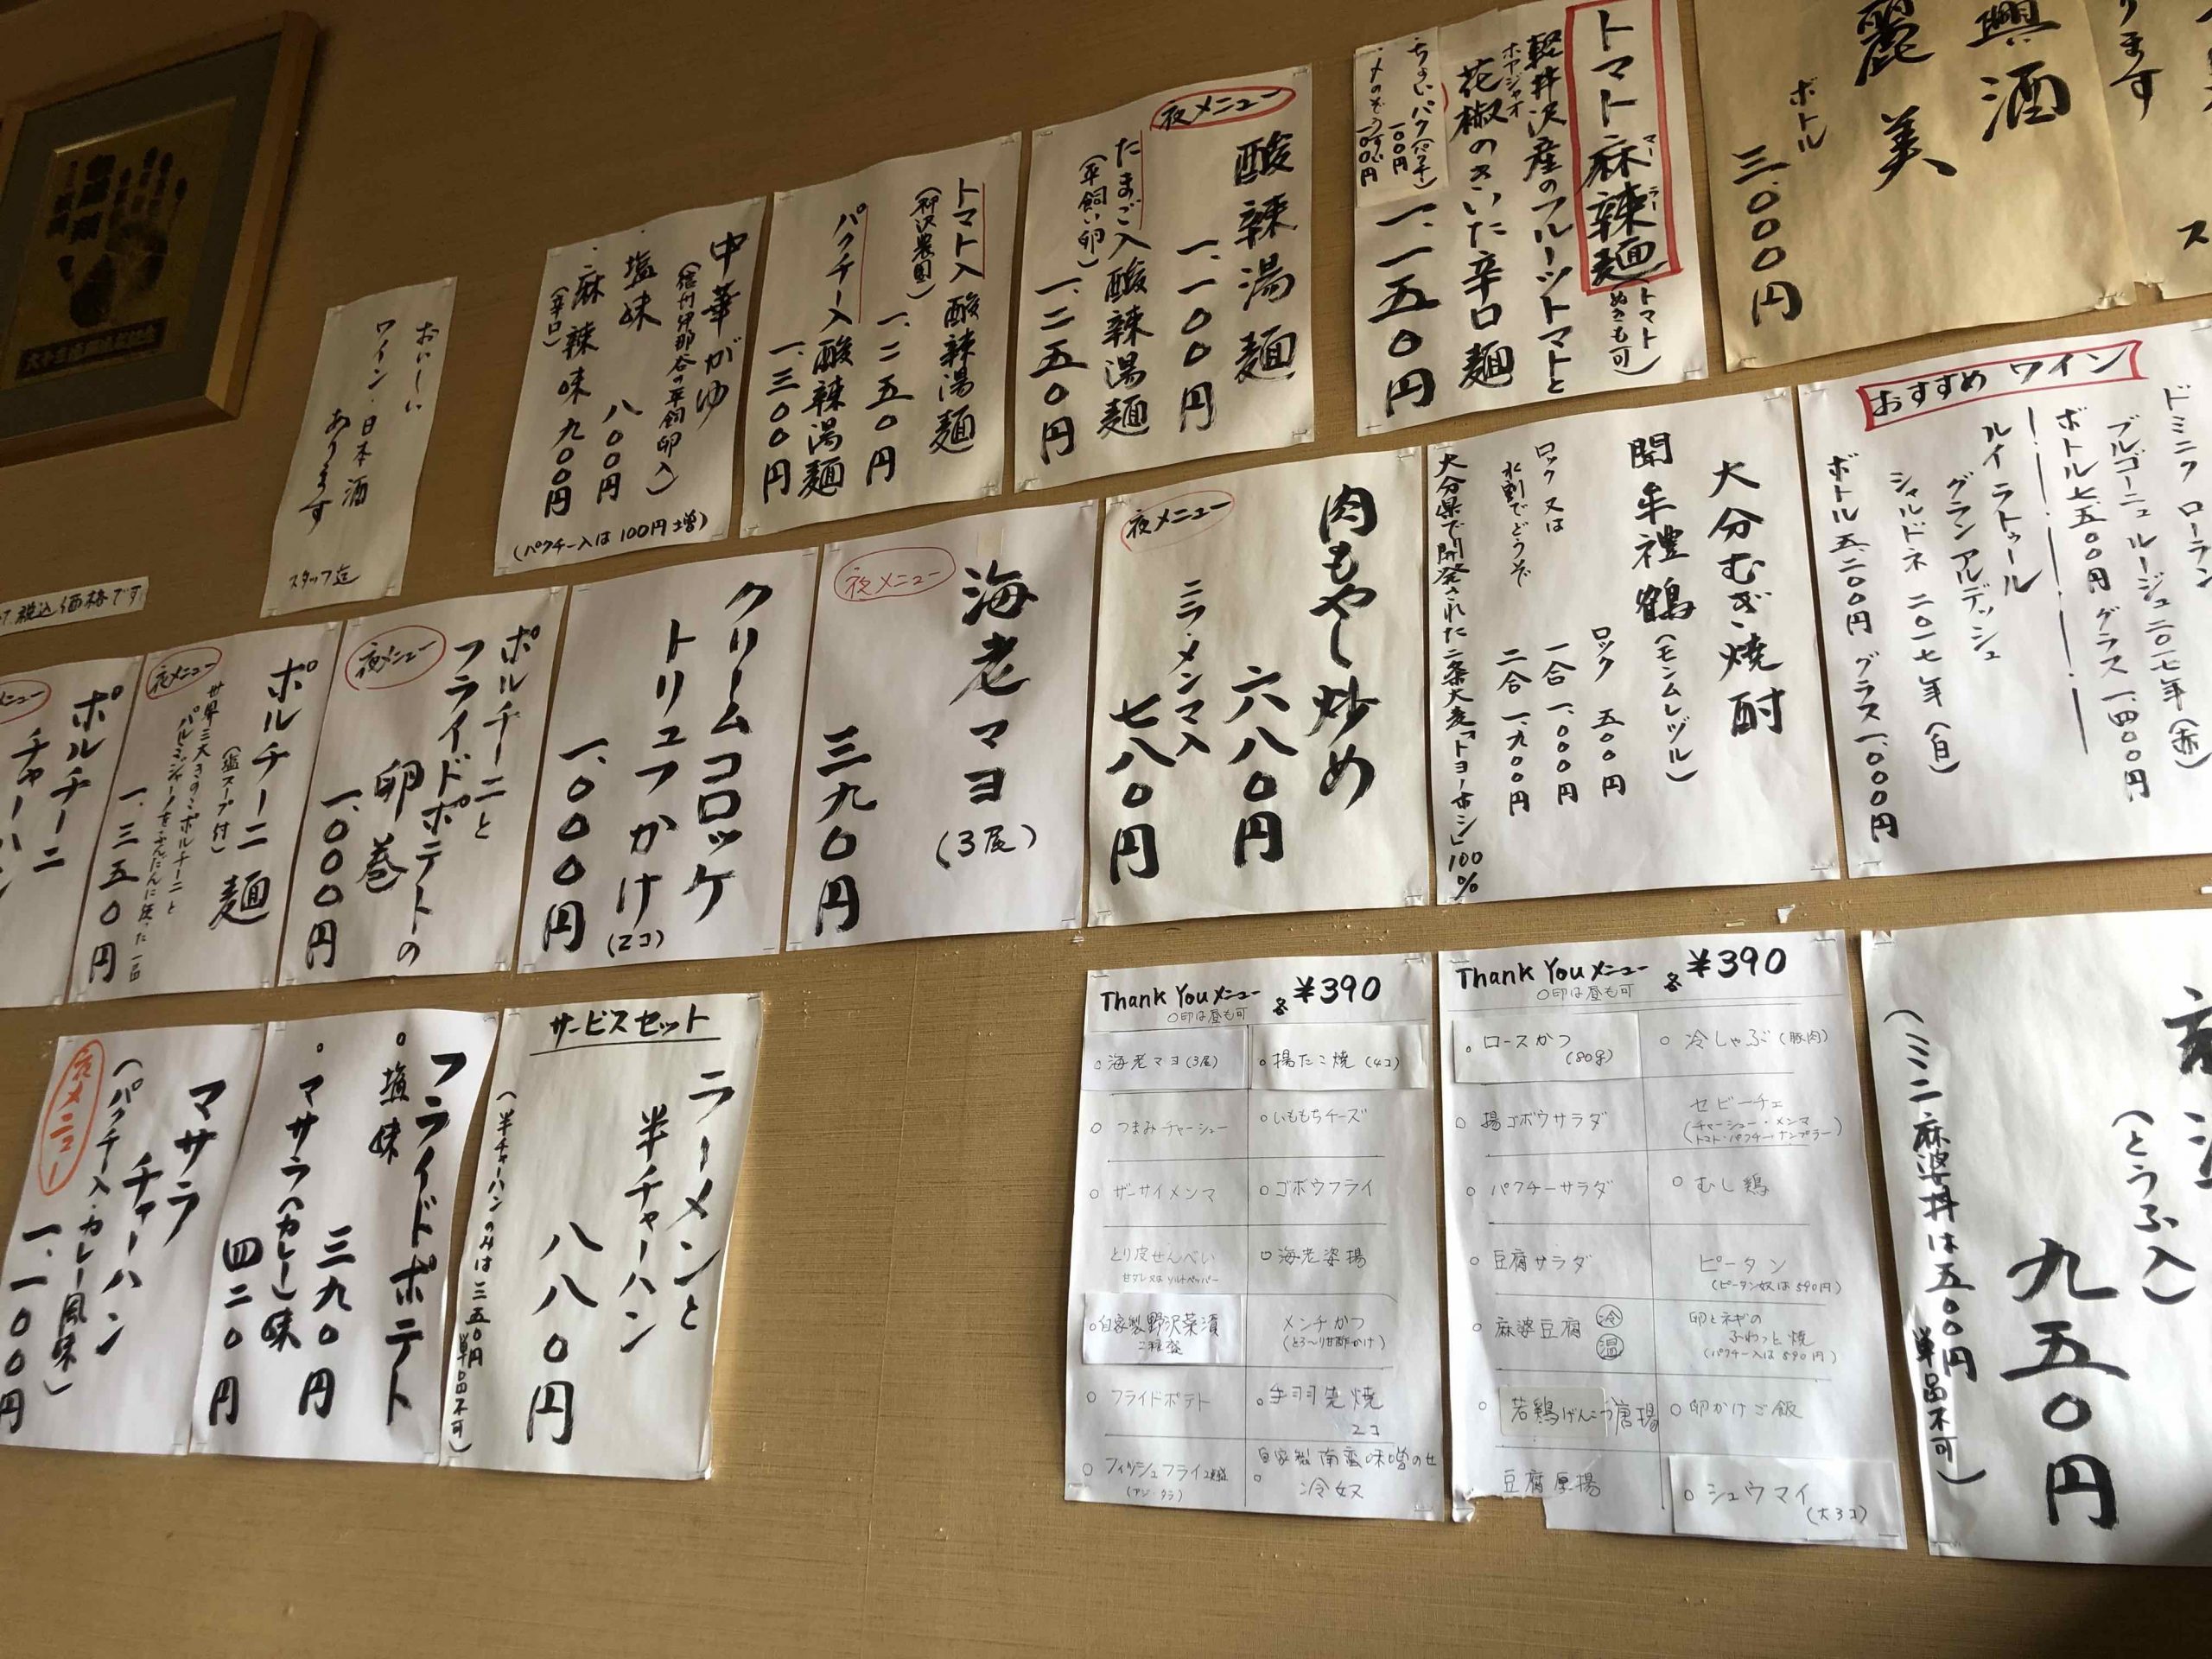 ります
興酒
麗美
ボトル
三、〇〇〇円
トマト麻辣麺
マー ラー
(トマトぬきも可)
軽井沢産のフルーツトマトと
ホアジャオ
花椒のきいた辛口麺
一、一五〇円
一〇〇円
夜メニュー
酸辣湯麺
一、一〇〇円
たまご入酸辣湯麺
(平飼い卵)
一、二五〇円
トマト入酸辣湯麺
一、二五〇円
パクチー入酸辣湯麺
一、三〇〇円
中華がゆ
(信州伊那谷の平飼卵入)
・塩味 八〇〇円
・麻辣味 九〇〇円
(辛口)
(パクチー入は100円増)
おいしい
ワイン・日本酒
あります
スタッフ迄
税込価格です
おすすめ ワイン
ドミニク ローラン
ブルゴーニュ ルージュ 二〇一七年 (赤)
ボトル 七、五〇〇円 グラス 一、四〇〇円
ルイラトゥール
グラン アルデッシュ
シャルドネ 二〇一七年 (白)
ボトル 五、二〇〇円 グラス 一、〇〇〇円
大分むぎ焼酎
閉牟禮鶴
(モンムレヅル)
ロック 五〇〇円
一合 一、〇〇〇円
二合 一、九〇〇円
ロック 又は
水割でどうぞ
大分県で開発された二条大麦「トヨノホシ」100%
肉もやし炒め
六八〇円
ニラ・メンマ入
七八〇円
夜メニュー
海老マヨ
(3尾)
三九〇円
夜メニュー
クリームコロッケ
トリュフかけ
(2コ)
一、〇〇〇円
ポルチーニと
フライドポテトの
卵巻
一、〇〇〇円
夜メニュー
ポルチーニ麺
(塩スープ付)
世界三大きのこポルチーニと
パルミジャーノをふんだんに使った一品
一、三五〇円
夜メニュー
ポルチーニ
チャーハン
メニュー
(とうふ入)
九五〇円
(ミニ麻婆丼は五〇〇円 単品不可)
Thank You メニュー 各 ¥390
○印は昼も可
○ ロースかつ (80g)
○ 冷しゃぶ (豚肉)
○ 揚ゴボウサラダ
セビーチェ
(チャーシュー・メンマ
トマト・パクチー・ナンプラー)
○ パクチーサラダ
○ むし鶏
○ 豆腐サラダ
ピータン
(ピータン奴は590円)
○ 麻婆豆腐 冷 温
卵とネギの
ふわっと焼
(パクチー入は590円)
○ 若鶏げんこつ唐揚
○ 卵かけご飯
豆腐厚揚
○ シュウマイ
(大3コ)
Thank You メニュー 各 ¥390
○印は昼も可
○ 海老マヨ (3尾)
○ 揚たこ焼 (4コ)
○ つまみチャーシュー
○ いももちチーズ
○ ザーサイメンマ
○ ゴボウフライ
とり皮せんべい
甘ダレ又はソルトペッパー
○ 海老姿揚
○ 自家製野沢菜漬
二種盛
メンチかつ
(とろ〜り甘酢かけ)
○ フライドポテト
○ 手羽先焼
2コ
○ フィッシュフライ2種盛
(アジ・タラ)
○ 自家製南蛮味噌のせ
冷奴
サービスセット
ラーメンと
半チャーハン
八八〇円
(半チャーハンのみは三五〇円 単品不可)
フライドポテト
・塩味 三九〇円
・マサラ(カレー)味
四二〇円
マサラ
チャーハン
(パクチー入・カレー風味)
一、一〇〇円
夜メニュー